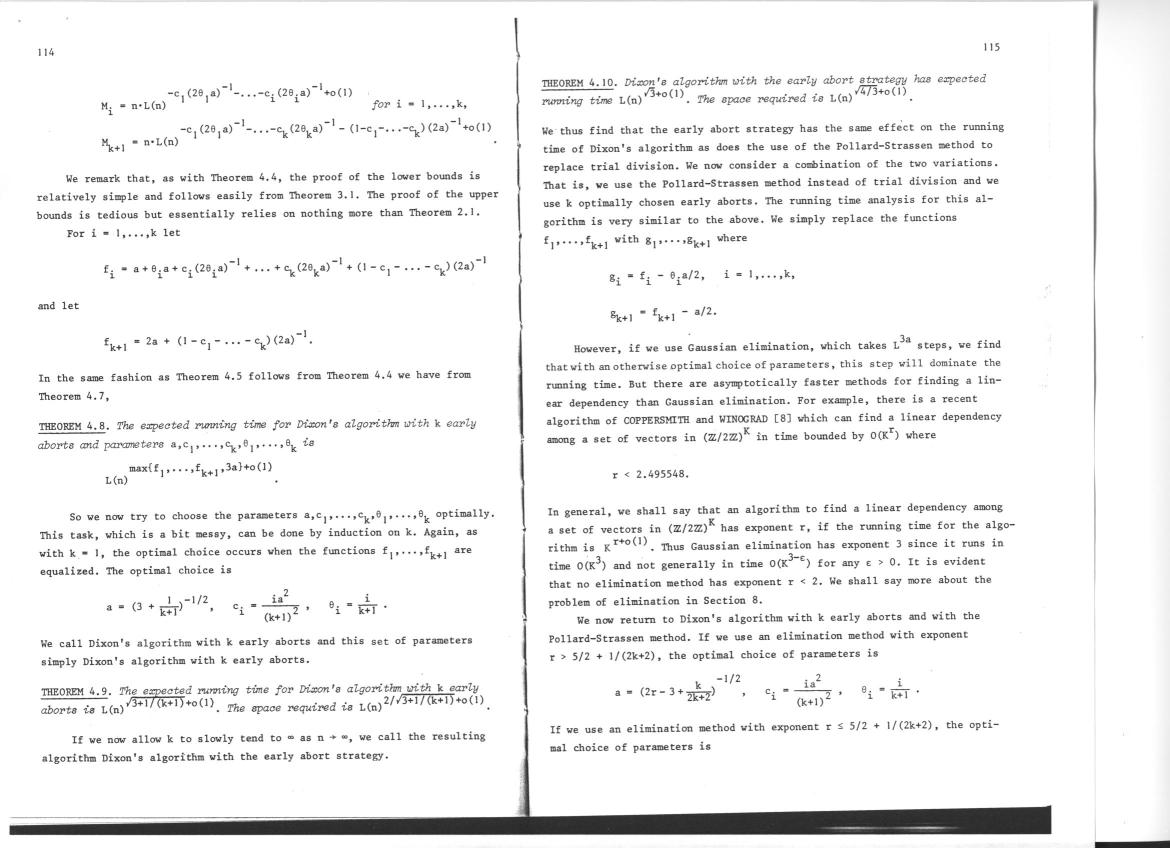 114
M_i = n·L(n)^{-c_1(2θ_1a)^{-1}-...-c_i(2θ_ia)^{-1}+o(1)} for i = 1,...,k,
M_{k+1} = n·L(n)^{-c_1(2θ_1a)^{-1}-...-c_k(2θ_ka)^{-1}-(1-c_1-...-c_k)(2a)^{-1}+o(1)}.
We remark that, as with Theorem 4.4, the proof of the lower bounds is
relatively simple and follows easily from Theorem 3.1. The proof of the upper
bounds is tedious but essentially relies on nothing more than Theorem 2.1.
For i = 1,...,k let
f_i = a + θ_ia + c_i(2θ_ia)^{-1} + ... + c_k(2θ_ka)^{-1} + (1 - c_1 - ... - c_k)(2a)^{-1}
and let
f_{k+1} = 2a + (1 - c_1 - ... - c_k)(2a)^{-1}.
In the same fashion as Theorem 4.5 follows from Theorem 4.4 we have from
Theorem 4.7,
THEOREM 4.8. The expected running time for Dixon's algorithm with k early
aborts and parameters a,c_1,...,c_k,θ_1,...,θ_k is
L(n)^{max{f_1,...,f_{k+1},3a}+o(1)}.
So we now try to choose the parameters a,c_1,...,c_k,θ_1,...,θ_k optimally.
This task, which is a bit messy, can be done by induction on k. Again, as
with k = 1, the optimal choice occurs when the functions f_1,...,f_{k+1} are
equalized. The optimal choice is
a = (3 + 1/(k+1))^{-1/2}, c_i = ia^2/(k+1)^2, θ_i = i/(k+1).
We call Dixon's algorithm with k early aborts and this set of parameters
simply Dixon's algorithm with k early aborts.
THEOREM 4.9. The expected running time for Dixon's algorithm with k early
aborts is L(n)^{√(3+1/(k+1))+o(1)}. The space required is L(n)^{2/√(3+1/(k+1))+o(1)}.
If we now allow k to slowly tend to ∞ as n → ∞, we call the resulting
algorithm Dixon's algorithm with the early abort strategy.
115
THEOREM 4.10. Dixon's algorithm with the early abort strategy has expected
running time L(n)^{√3+o(1)}. The space required is L(n)^{√(4/3)+o(1)}.
We thus find that the early abort strategy has the same effect on the running
time of Dixon's algorithm as does the use of the Pollard-Strassen method to
replace trial division. We now consider a combination of the two variations.
That is, we use the Pollard-Strassen method instead of trial division and we
use k optimally chosen early aborts. The running time analysis for this al-
gorithm is very similar to the above. We simply replace the functions
f_1,...,f_{k+1} with g_1,...,g_{k+1} where
g_i = f_i - θ_ia/2, i = 1,...,k,
g_{k+1} = f_{k+1} - a/2.
However, if we use Gaussian elimination, which takes L^{3a} steps, we find
that with an otherwise optimal choice of parameters, this step will dominate the
running time. But there are asymptotically faster methods for finding a lin-
ear dependency than Gaussian elimination. For example, there is a recent
algorithm of COPPERSMITH and WINOGRAD [8] which can find a linear dependency
among a set of vectors in (ℤ/2ℤ)^K in time bounded by O(K^r) where
r < 2.495548.
In general, we shall say that an algorithm to find a linear dependency among
a set of vectors in (ℤ/2ℤ)^K has exponent r, if the running time for the algo-
rithm is K^{r+o(1)}. Thus Gaussian elimination has exponent 3 since it runs in
time O(K^3) and not generally in time O(K^{3-ε}) for any ε > 0. It is evident
that no elimination method has exponent r < 2. We shall say more about the
problem of elimination in Section 8.
We now return to Dixon's algorithm with k early aborts and with the
Pollard-Strassen method. If we use an elimination method with exponent
r > 5/2 + 1/(2k+2), the optimal choice of parameters is
a = (2r - 3 + k/(2k+2))^{-1/2}, c_i = ia^2/(k+1)^2, θ_i = i/(k+1).
If we use an elimination method with exponent r ≤ 5/2 + 1/(2k+2), the opti-
mal choice of parameters is